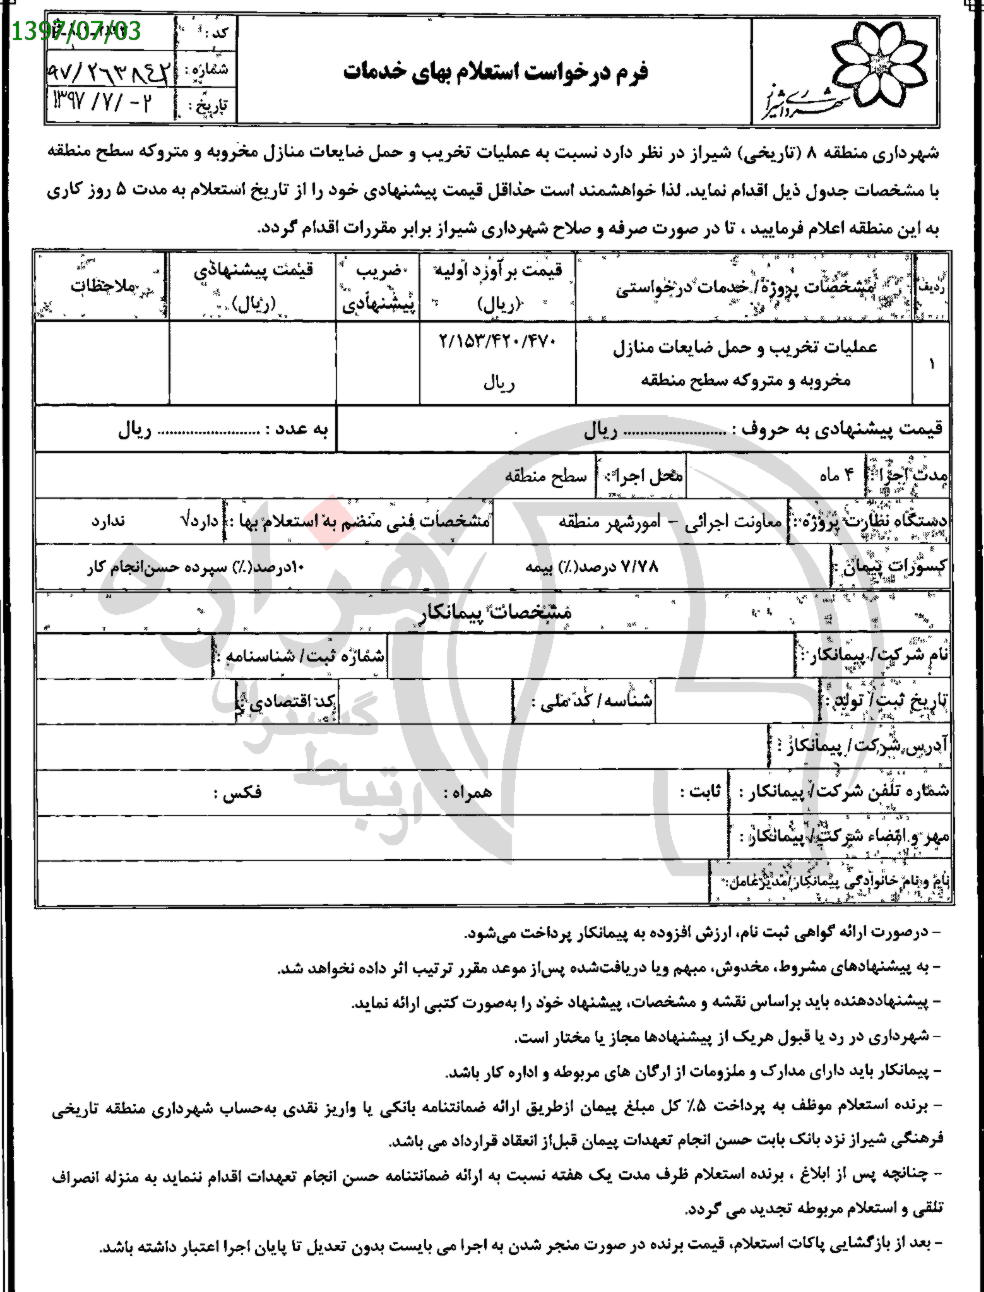 1397/07/03
شهرداری شیراز
فرم درخواست استعلام بهای خدمات
کد :
شماره : ۹۷/۲۶۳۸۴۲
تاریخ : ۱۳۹۷/۷/-۲
شهرداری منطقه ۸ (تاریخی) شیراز در نظر دارد نسبت به عملیات تخریب و حمل ضایعات منازل مخروبه و متروکه سطح منطقه
با مشخصات جدول ذیل اقدام نماید. لذا خواهشمند است حداقل قیمت پیشنهادی خود را از تاریخ استعلام به مدت ۵ روز کاری
به این منطقه اعلام فرمایید ، تا در صورت صرفه و صلاح شهرداری شیراز برابر مقررات اقدام گردد.
ردیف مشخصات پروژه/ خدمات درخواستی قیمت برآورد اولیه (ریال) ضریب پیشنهادی قیمت پیشنهادی (ریال) ملاحظات
۱ عملیات تخریب و حمل ضایعات منازل ۲/۱۵۳/۴۲۰/۴۷۰
مخروبه و متروکه سطح منطقه ریال
قیمت پیشنهادی به حروف : ........................ ریال به عدد : ........................ ریال
مدت اجرا : ۴ ماه محل اجرا : سطح منطقه
دستگاه نظارت پروژه : معاونت اجرائی – امورشهر منطقه مشخصات فنی منضم به استعلام بها : دارد√ ندارد
کسورات پیمان : ۷/۷۸ درصد(٪) بیمه ۱۰درصد(٪) سپرده حسن‌انجام کار
مشخصات پیمانکار
نام شرکت/ پیمانکار : شماره ثبت/ شناسنامه :
تاریخ ثبت/ تولد : شناسه/ کد ملی : کد اقتصادی :
آدرس شرکت/ پیمانکار :
شماره تلفن شرکت/ پیمانکار : ثابت : همراه : فکس :
مهر و امضاء شرکت/ پیمانکار :
نام و نام خانوادگی پیمانکار/مدیرعامل:
هزاره
گستران
ارتباط
– درصورت ارائه گواهی ثبت نام، ارزش افزوده به پیمانکار پرداخت می‌شود.
– به پیشنهادهای مشروط، مخدوش، مبهم ویا دریافت‌شده پس‌از موعد مقرر ترتیب اثر داده نخواهد شد.
– پیشنهاددهنده باید براساس نقشه و مشخصات، پیشنهاد خود را به‌صورت کتبی ارائه نماید.
– شهرداری در رد یا قبول هریک از پیشنهادها مجاز یا مختار است.
– پیمانکار باید دارای مدارک و ملزومات از ارگان های مربوطه و اداره کار باشد.
– برنده استعلام موظف به پرداخت ۵٪ کل مبلغ پیمان ازطریق ارائه ضمانتنامه بانکی یا واریز نقدی به‌حساب شهرداری منطقه تاریخی
فرهنگی شیراز نزد بانک بابت حسن انجام تعهدات پیمان قبل‌از انعقاد قرارداد می باشد.
– چنانچه پس از ابلاغ ، برنده استعلام ظرف مدت یک هفته نسبت به ارائه ضمانتنامه حسن انجام تعهدات اقدام ننماید به منزله انصراف
تلقی و استعلام مربوطه تجدید می گردد.
– بعد از بازگشایی پاکات استعلام، قیمت برنده در صورت منجر شدن به اجرا می بایست بدون تعدیل تا پایان اجرا اعتبار داشته باشد.